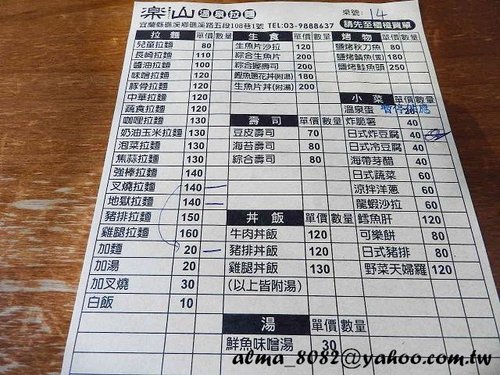 楽山 溫泉拉麵
桌號: 14
宜蘭縣礁溪鄉礁溪路五段108巷1號 TEL:03-9888637 請先至櫃檯買單
拉麵 單價 數量 生食 單價 數量 烤物 單價 數量
兒童拉麵 80 生魚片沙拉 120 鹽烤秋刀魚 80
長崎拉麵 110 綜合生魚片 200 鹽烤鯖魚 100
醬油拉麵 100 綜合握壽司 200 鹽烤鮭魚頭 250
味噌拉麵 120 鮭魚蔥花丼(附湯) 180
豚骨拉麵 120 生魚片丼(附湯) 200
中華拉麵 120 小菜 單價 數量
蔬食拉麵 120 溫泉蛋
咖哩拉麵 130 壽司 單價 數量 炸脆薯 40
奶油玉米拉麵 130 豆皮壽司 70 日式炸豆腐 40
泡菜拉麵 130 海苔壽司 80 日式冷豆腐 40
焦蒜拉麵 130 綜合壽司 80 海帶芽醋 40
強棒拉麵 140 日式蔬菜 60
叉燒拉麵 140 涼拌洋蔥 60
地獄拉麵 140 龍蝦沙拉 60
豬排拉麵 150 丼飯 單價 數量 鱈魚肝 120
雞腿拉麵 160 牛肉丼飯 120 可樂餅 80
加麵 20 豬排丼飯 120 日式豬排 80
加湯 20 雞腿丼飯 130 野菜天婦羅 120
加叉燒 30 (以上皆附湯)
白飯 10
湯 單價 數量
鮮魚味噌湯 30
alma_8082@yahoo.com.tw